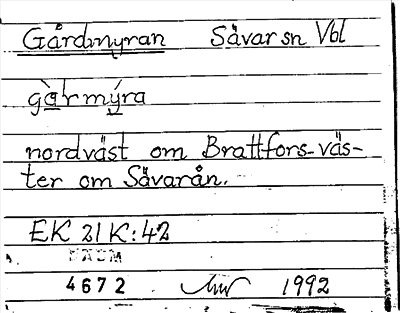 Gårdmyran Sävar sn Vbl
gàrmýra
nordväst om Brattfors - väs-
ter om Sävarån.
EK 21 K:42
4672 1992